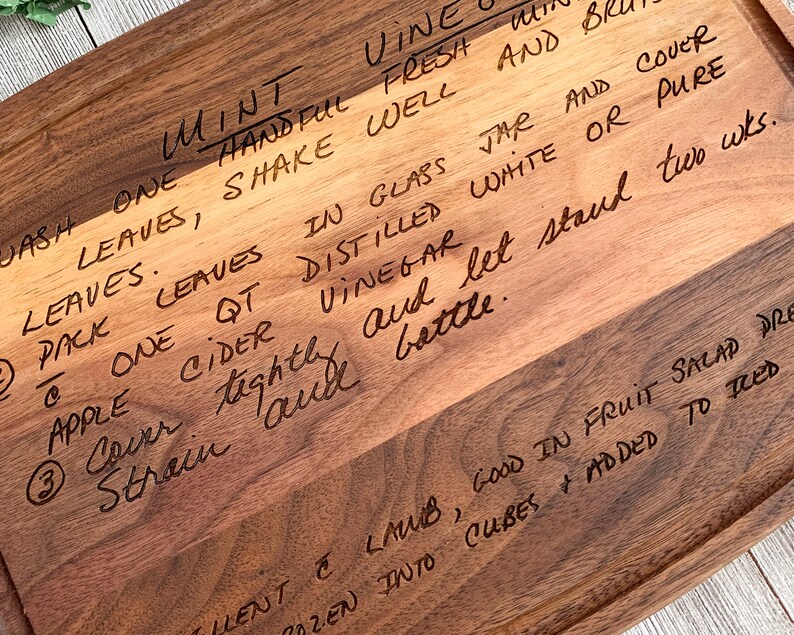 MINT VINEG
WASH ONE HANDFUL FRESH MIN
LEAVES, SHAKE WELL AND BRUIS
LEAVES.
PACK LEAVES IN GLASS JAR AND COVER
c̄ ONE QT DISTILLED WHITE OR PURE
APPLE CIDER VINEGAR
③ Cover tightly and let stand two wks.
Strain and bottle.
LLENT c̄ LAMB, GOOD IN FRUIT SALAD DRE
OZEN INTO CUBES & ADDED TO ICED